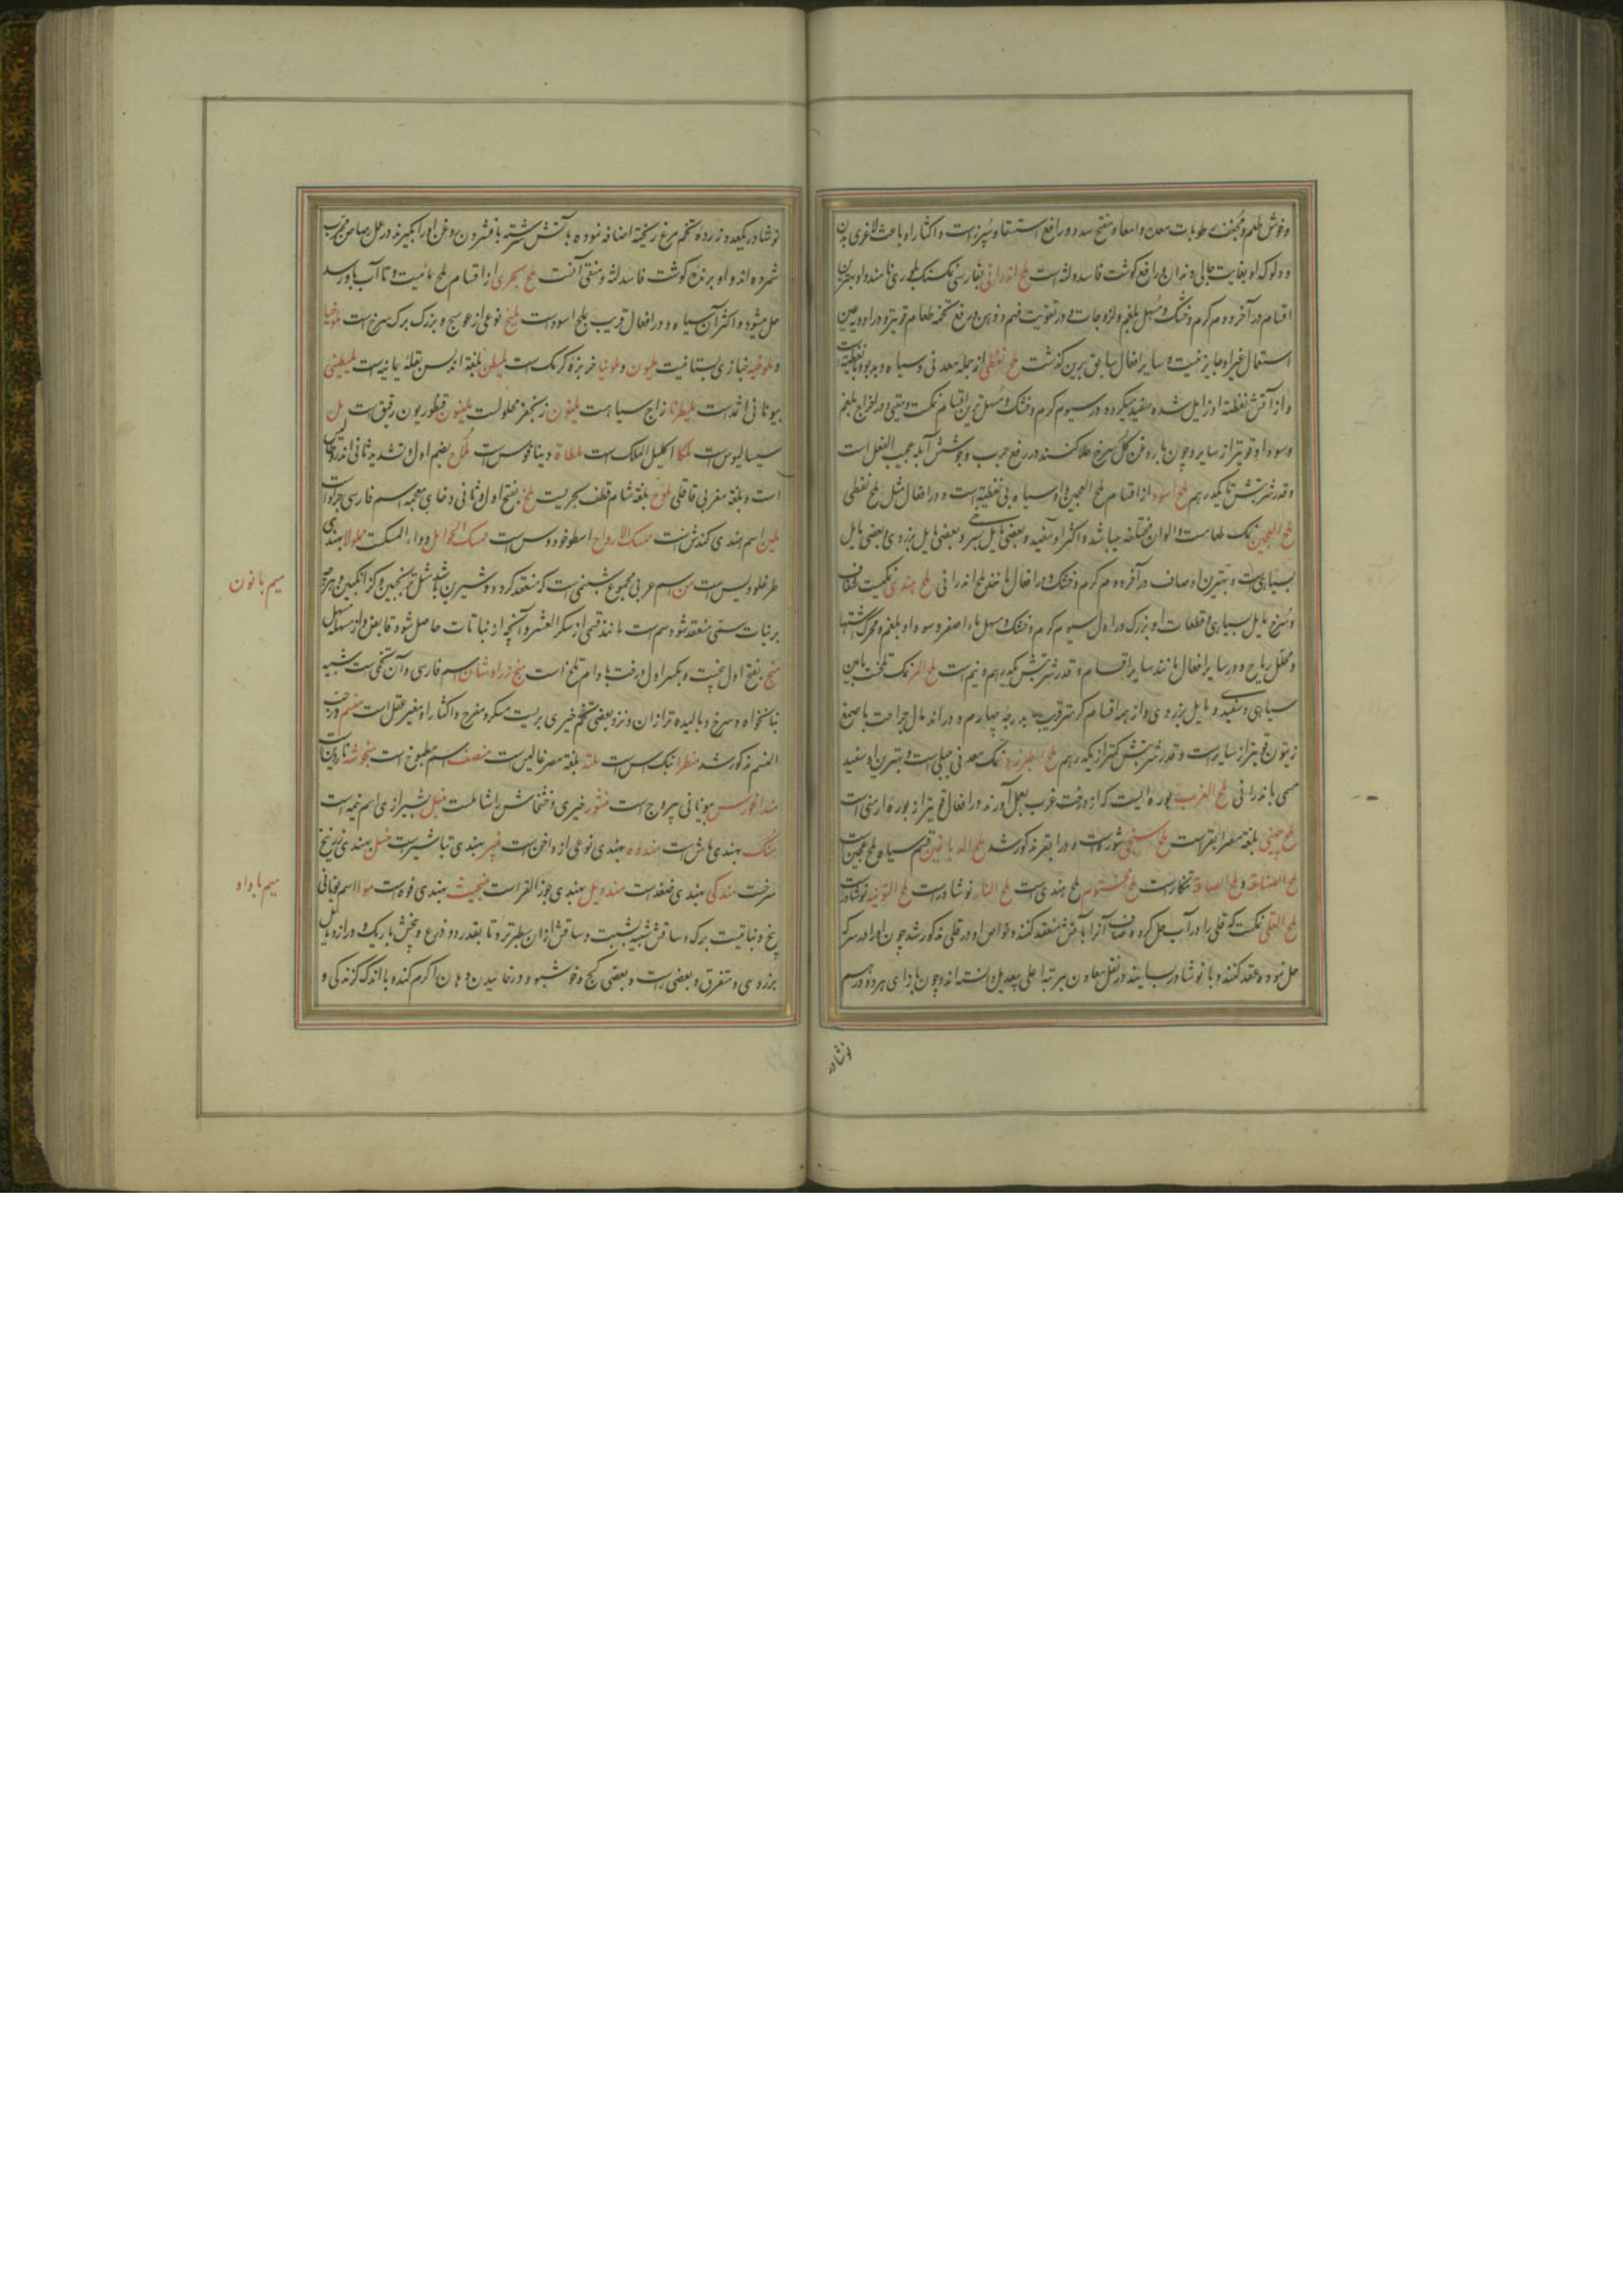 وخوش طعم و مجفف رطوبات معده و امعا و مفتح سدد و رافع استسقا و سپرز است و اکثار او باعث لاغری بدن
و دلوک او بغایت جالی دندان و رافع گوشت فاسد لثه است ملح اندرانی بفارسی نمک سنک بلوری نامند و او بهترین
اقسام در آخر دوم گرم و خشک و مسهل بلغم و لزوجات و در تقویت فهم و ذهن و رفع تخمه طعام قویتر و در ادویه عین
استعمال غیر او جایز نیست و سایر افعال سابق برین گذشت ملح نفطی از جمله معدنی و سیاه و بدبو و با نفطیة است
و از آتش نفطیة او زایل شده سفید میگردد در سیوم گرم و خشک و مسهل ترین اقسام نمک است و مقیئ و در اخراج بلغم
و سودا قویتر از سایر و چون با روغن گل سرخ طلا کنند در رفع جرب و جوشش آبله عجیب الفعل است
و قدر شربتش تا یکدرهم ملح اسود از اقسام ملح العجین و او سیاه بی نفطیة است و در افعال مثل ملح نفطی
ملح العجین نمک طعام است و الوان مختلفه میباشد و اکثر او سفید و بعضی مایل بسرخی و بعضی مایل بزردی و بعضی مایل
بسیاهی است و بهترین او صاف در آخر دوم گرم و خشک و در افعال مانند ملح اندرانی ملح هندی نمکیست شفاف
و سرخ مایل بسیاهی و قطعات او بزرک در اول سیوم گرم و خشک و مسهل ماء اصفر و سودا و بلغم و محرک اشتها
و محلل ریاح و در سایر افعال مانند سایر اقسام و قدر شربتش یکدرهم و نیم است ملح المر نمک تلخیست مابین
سیاهی و سفیدی و مایل بزردی و از همه اقسام گرمتر قریب بدرجه چهارم و در اندمال جراحت با صمغ
زیتون قویتر از سایر است و قدر شربتش کمتر از یکدرهم ملح الطبرزد نمک معدنی جبلی است و بهترین او سفید
مسمی باندرانی ملح الغرب بوره ایست که از درخت غرب بعمل آورند در افعال قویتر از بوره ارمنی است
ملح چینی بلغة مصر ابقر است ملح سبخی شوره است و در ابقر مذکور شد ملح الدباغین قسم سیاه ملح عجین است
ملح الصناعة و ملح الصباغة تنکار است ملح مختوم ملح هندی است ملح النار نوشادر است ملح التوتیه نوشادر است
ملح القلی نمکیست که قلی را در آب حل کرده صاف آنرا باتش منعقد کنند و خواص او در قلی مذکور شد چون او را در سرکه
حل نموده عقد کنند و با نوشادر بسایند در نقل معادن بمرتبه اعلی بیعدیل دانسته اند و چون بازای هر دو درهم
نوشادر
نوشادر یکعدد زرده تخم مرغ ریخته اضافه نموده باتش سرشته بافشردن روغن او را بگیرند در عمل رصاص مجرب
شمرده اند و او برنده گوشت فاسد لثه و منقی آنست ملح بحری از اقسام ملح مائیست و تا آب باو رسد
حل میشود و اکثر آن سیاه و در افعال قریب بملح اسود است ملیخ نوعی از عوسج و بزرک برک سرخ است ملوخیا
و ملوخیه خبازی بستانیست ملیون و ملونیا خربزه گرمک است ملیلن بلغة اندلس بقله یمانیه است ملیطینی
بیونانی اثمد است ملیطرنا زاج سیاهست ملیون زنجفر محلولست ملینون قنطوریون رقیق است مل
سیسالیوس است ملکا اکلیل الملک است ملطاة دیناقوس است ملاح بضم اول و تشدید ثانی اندروطالیس
است و بلغة مغربی قاقلی ملوح بلغة شام قطف بحریست ملخ بفتح اول و ثانی و خای معجمه اسم فارسی جراد است
ملین اسم هندی کندش است ممسک الارواح اسطوخودوس است ممسک الحوامل دواء المسکست مملولا بهندی
طرغلودیس است من اسم عربی مجموع شبنمی است که منعقد گردد و شیرین باشد مثل ترنجبین و گزانگبین و هرچه
بر نباتات سمی منعقد شود سم است مانند قسمی از سکر العشر و آنچه از نباتات حاصل شود قابض و از مسهله مسهل
منج بفتح اول عنبیت و بکسر اول درخت بادام تلخ است منج زراوشان اسم فارسی و آن تخمی است شبیه
بنانخواه و سرخ و بالیده تر از ان و نزد بعضی تخم خیری بریست مسکر و مفرح و اکثار او مغیر عقل است منسم در حب
المنسم مذکور شد منطرا تنک اس است منته بلغة مصر غالیس است منصف اسم مطبوخ است منجوشه ناردین است
مندراغورس بیونانی یبروج است منثور خیری و خشخاش را شاملست منبل بشیرازی اسم نیمه است
منک بهندی ماش است مندوه بهندی نوعی از دخن است منیر بهندی تباشیر است منسل بهندی زرنیخ
سرخست مندکی بهندی ضفدعست مندوبل بهندی جوز القی است منجیث بهندی فوه است موا اسم یونانی
بیخ و نباتیست برک و ساقش شبیه بشبت و ساقش ازان سطبرتر و تا بقدر دو ذرع و بیخش باریک و دراز و مایل
بزردی و متفرق و بعضی راست و بعضی کج و خوشبو و در خائیدن دهان را گرم کننده با اندک گزندگی و
میم با نون
میم با واو